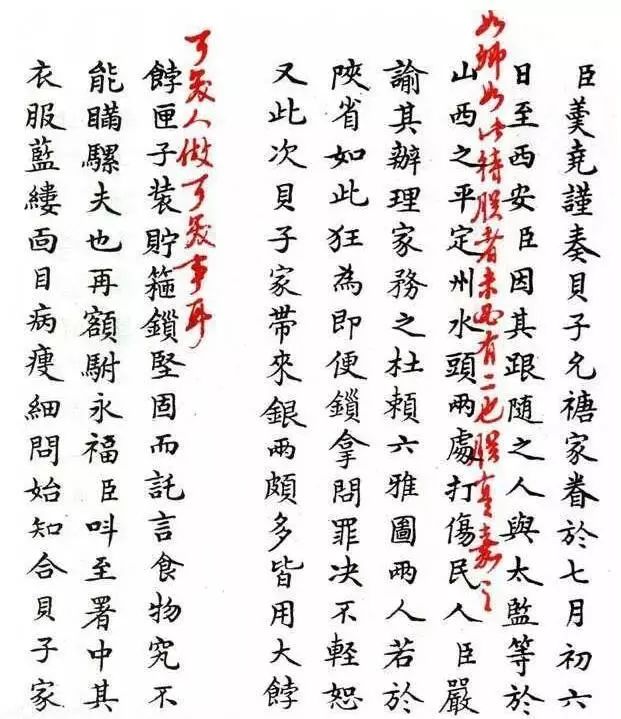 臣羹堯謹奏貝子允禟家眷於七月初六
日至西安臣因其跟隨之人與太監等於
如卿如此待朕者未必有二也朕真嘉之
山西之平定州水頭兩處打傷民人臣嚴
諭其辦理家務之杜頼六雅圖兩人若於
陜省如此狂為即便鎖拿問罪决不輕恕
又此次貝子家帶來銀兩頗多皆用大餑
可笑人做可笑事耳
餑匣子装貯箍鎖堅固而託言食物究不
能瞞騾夫也再額駙永福臣呌至署中其
衣服藍縷面目病瘦細問始知合貝子家